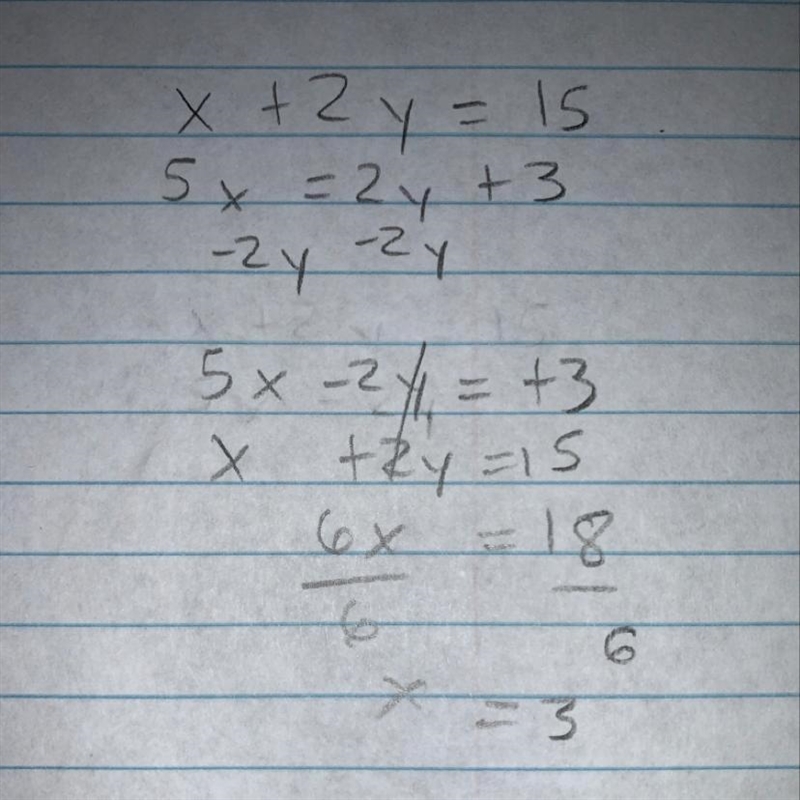 x + 2y = 15
5x = 2y + 3
-2y -2y
5x - 2y = +3
x + 2y = 15
6x = 18
6 6
x = 3